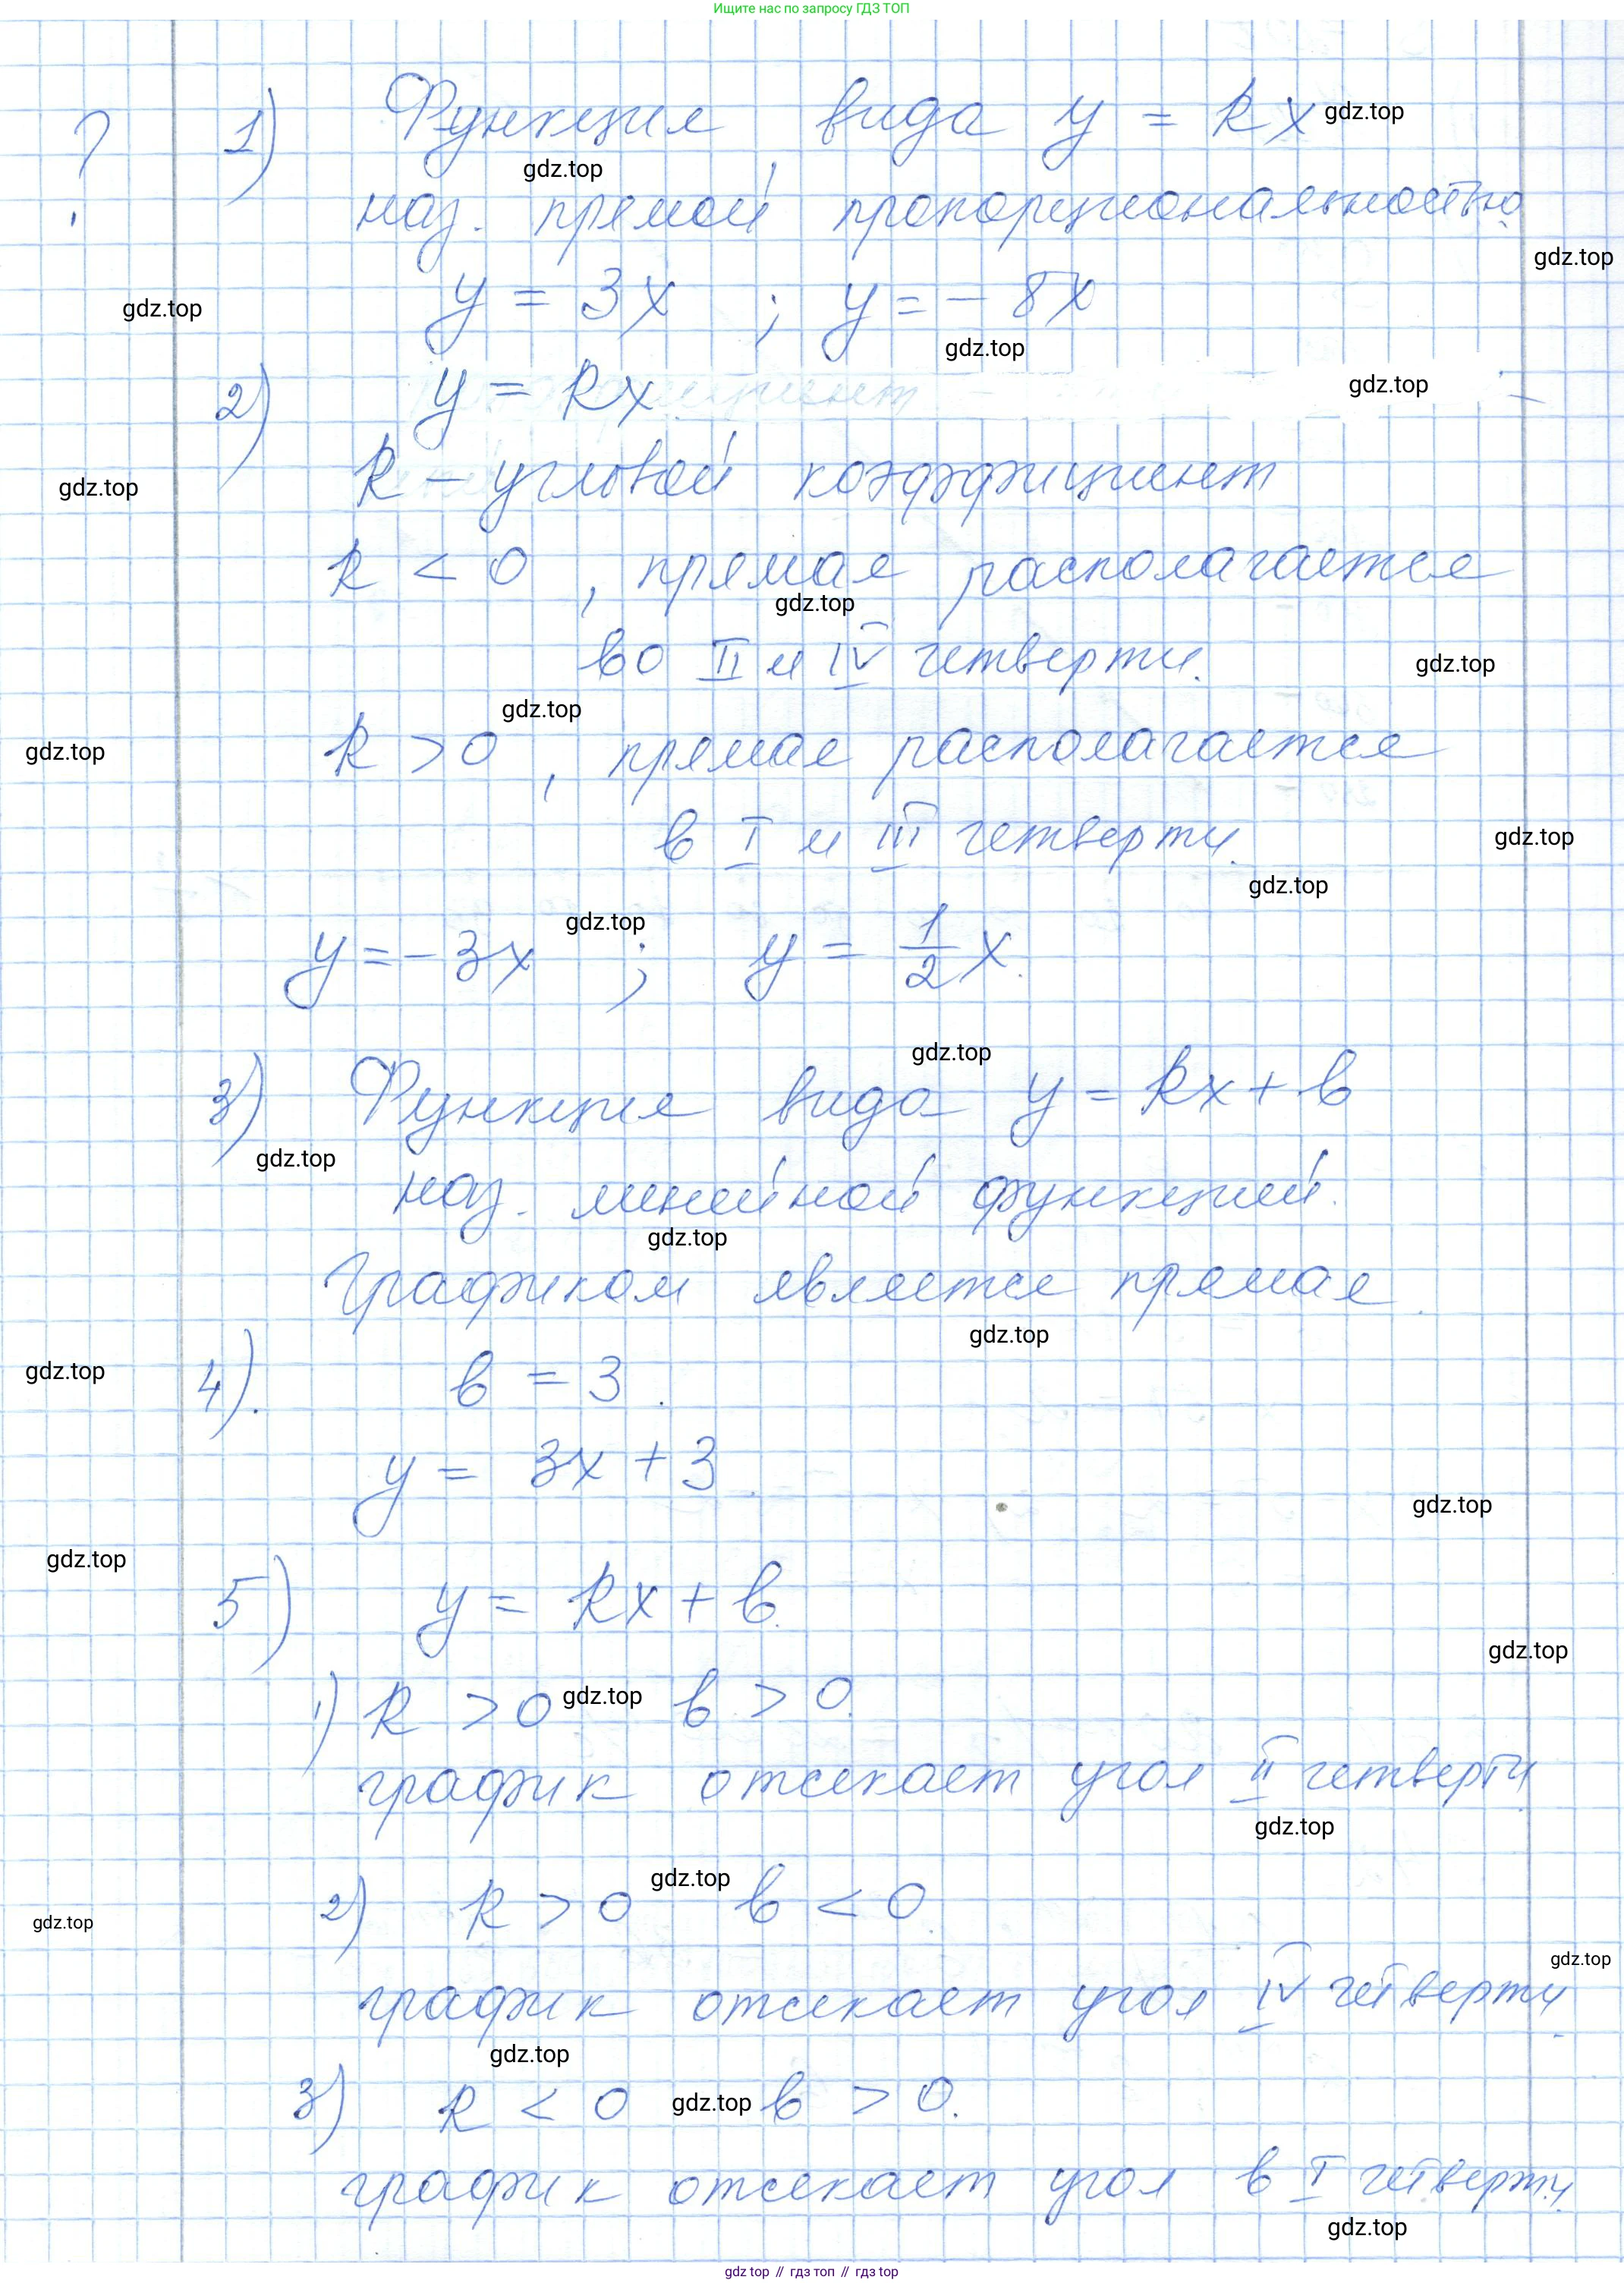 Ищите нас по запросу ГДЗ ТОП
? 1) Функция вида y = kx gdz.top
gdz.top
наз. прямой пропорциональностью
gdz.top
gdz.top
y = 3x ; y = - 8x
gdz.top
2) y = kx gdz.top
k - угловой коэффициент
gdz.top
k < 0 , прямая располагается
gdz.top
во II и IV четверти. gdz.top
gdz.top
k > 0 , прямая располагается
gdz.top
в I и III четверти. gdz.top
gdz.top
gdz.top
y = - 3x ; y = 1/2 x.
gdz.top
3) Функция вида y = kx + b
gdz.top
наз. линейной функцией.
gdz.top
Графиком является прямая.
gdz.top
gdz.top
4). b = 3.
y = 3x + 3.
gdz.top
gdz.top
5) y = kx + b.
gdz.top
1) k > 0 gdz.top b > 0.
график отсекает угол II четверти
gdz.top
gdz.top
2) k > 0 b < 0.
gdz.top
gdz.top
график отсекает угол IV четверти
gdz.top
3) k < 0 gdz.top b > 0.
график отсекает угол в I четверти.
gdz.top
gdz top // гдз топ // гдз top